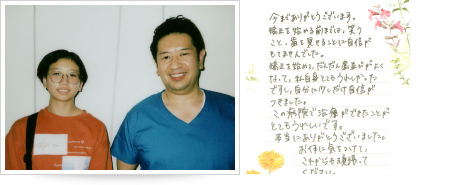 今までありがとうございます。
矯正を始める前までは、笑う
こと、歯を見せることに自信が
もてませんでした。
矯正を始めて、だんだん歯並びがよく
なって、私自身とてもうれしかった
ですし、自分に少しだけ自信が
つきました。
この病院で治療ができたことが
とてもうれしいです。
本当にありがとうございました。
お体に気をつけて、
これからも頑張って
ください。